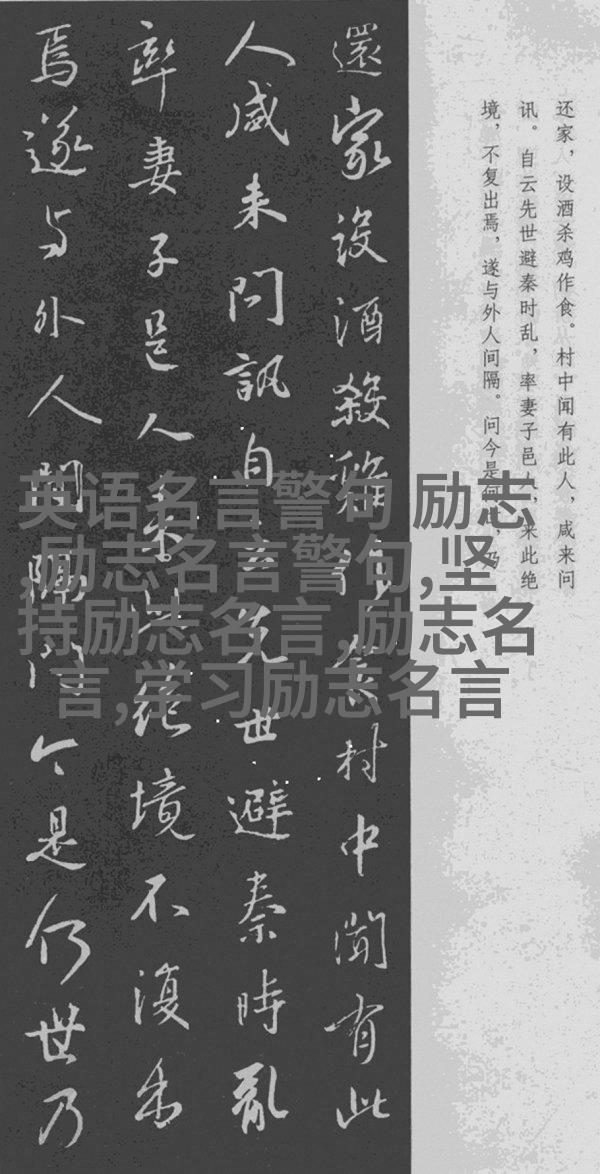 还家，设酒杀鸡作食。村中闻有此人，咸来问
讯。自云先世避秦时乱，率妻子邑人，来此绝
境，不复出焉，遂与外人间隔。问今是何世，乃
還家設酒殺雞作食村中聞有此
人咸来問訊自云先世避秦時亂
率妻子邑人来此絶境不復出
焉遂与外人間隔問今是何世乃
英语名言警句 励志
,励志名言警句,坚
持励志名言,励志名
言,学习励志名言